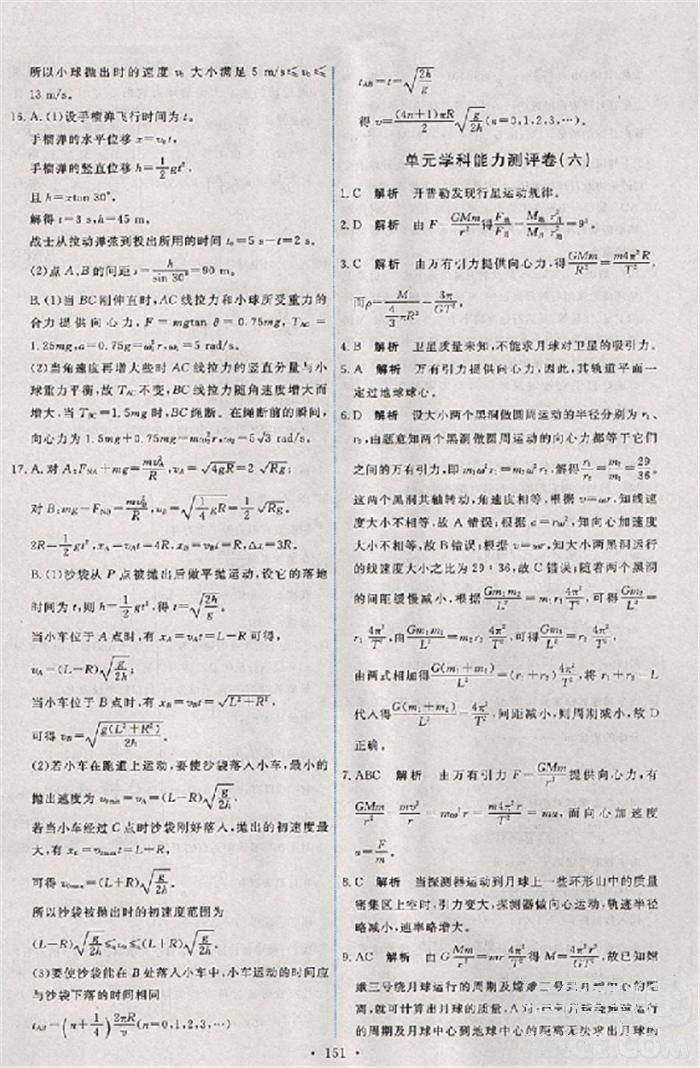 所以小球抛出时的速度 v₀ 大小满足 5 m/s≤v₀≤
13 m/s.
16. A. (1)设手榴弹飞行时间为 t.
手榴弹的水平位移 x=v₀t,
手榴弹的竖直位移 h=1/2 gt²
且 h=xtan 30°
解得 t=3 s, h=45 m.
战士从拉动弹弦到投出所用的时间 t₀=5 s-t=2 s.
(2)点 A、B 的间距 s=h/sin 30°=90 m.
B. (1)当 BC 刚伸直时,AC 线拉力和小球所受重力的
合力提供向心力,F=mgtan θ=0.75mg,T_AC=
1.25mg,a=0.75g=ω₁²r,ω₁=5 rad/s.
(2)当角速度再增大些时 AC 线拉力的竖直分量与小
球重力平衡,故 T_AC 不变,BC 线拉力随角速度增大而
增大,当 T_BC=1.5mg 时 BC 绳断。在绳断前的瞬间,
向心力为 1.5mg+0.75mg=mω₂²r,ω₂=5√3 rad/s.
17. A. 对 A:F_NA+mg=mv_A²/R,v_A=√4gR=2√Rg.
对 B:mg-F_NB=mv_B²/R,v_B=√(1/4 gR)=1/2 √Rg.
2R=1/2 gt²,x_A=v_At=4R,x_B=v_Bt=R,Δx=3R.
B. (1)沙袋从 P 点被抛出后做平抛运动,设它的落地
时间为 t,则 h=1/2 gt²,t=√(2h/g)
当小车位于 A 点时,有 x_A=v_At=L-R 可得,
v_A=(L-R)√(g/2h)
当小车位于 B 点时,有 x_B=v_Bt=√(L²+R²),
可得 v_B=√(g(L²+R²)/2h)
(2)若小车在跑道上运动,要使沙袋落入小车,最小的
抛出速度为 v₀min=v_A=(L-R)√(g/2h)
若当小车经过 C 点时沙袋刚好落入,抛出的初速度最大
有 x_C=v₀maxt=L+R
可得 v₀max=(L+R)√(g/2h)
所以沙袋被抛出时的初速度范围为
(L-R)√(g/2h)≤v₀≤(L+R)√(g/2h)
(3)要使沙袋能在 B 处落入小车中,小车运动的时间应
与沙袋下落的时间相同
t_AB=(n+1/4)2πR/v(n=0,1,2,3,…)
t_AB=t=√(2h/g)
得 v=(4n+1)πR/2 √(g/2h)(n=0,1,2,3,…)
单元学科能力测评卷(六)
1. C 解析 开普勒发现行星运动规律。
2. D 解析 由 F=GMm/r² 得
3. C 解析 由万有引力提供向心力,得 GMm/R²=m4π²R/T²,
而 ρ=M/(4/3 πR³)=3π/GT².
4. B 解析 卫星质量未知,不能求月球对卫星的吸引力。
5. A 解析 万有引力提供向心力,其轨道平面一
定过地球球心。
6. D 解析 设大小两个黑洞做圆周运动的半径分别为 r₁,
r₂,由题意知两个黑洞做圆周运动的向心力是由它们
之间的万有引力提供,即 m₁ω²r₁=m₂ω²r₂,解得 r₁/r₂=29/36,
这两个黑洞共轴转动,角速度大小相等,故知线速
度大小不相等,故 A 错误;根据 a=rω²,知向心加速度
大小不相等,故 B 错误;因为 v=ωr,知这两个黑洞
的线速度大小之比为 29∶36,故 C 错误;随着两个黑洞
的间距缓慢减小,根据 Gm₁m₂/L²=m₁r₁4π²/T²,得 Gm₂/L²=
r₁4π²/T²,根据 Gm₁m₂/L²=m₂r₂4π²/T²,得 Gm₁/L²=r₂4π²/T²,
由两式相加得 G(m₁+m₂)/L²=(r₁+r₂)4π²/T²,将 r₁+r₂=L
代入得 G(m₁+m₂)/L³=4π²/T²,间距减小,所以周期减小,故 D
正确。
7. ABC 解析 由万有引力 F=GMm/r² 提供向心力,
GMm/r²=mv²/r=mω²r=m4π²r/T²=ma,而向心加速度
a=F/m.
8. C 解析 当探测器运动到月球上一些环形山中的质量
密集区上空时,引力变大,探测器做向心运动,轨迹半径
略减小,速率略增大。
9. AC 解析 由 GMm/r²=m4π²/T²r,得 M=4π²r³/GT²,由已知嫦
娥三号绕月球运行的周期及嫦娥三号到月球中心的距
离,就可计算月球的质量,A 正确;
的周期及月球中心到地球中心的距离无法求出月球的
151